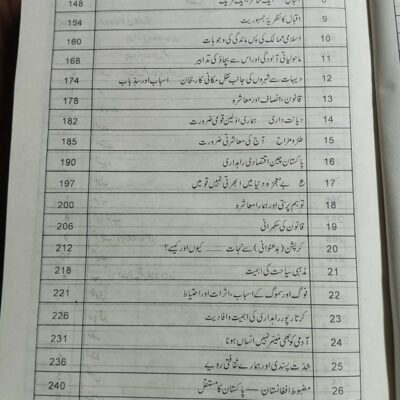 8 اقبال 148
9 اقبال کا نظریۂ جمہوریت 154
10 اسلامی ممالک کی پس ماندگی کی وجوہات 160
11 ماحولیاتی آلودگی اور اس سے بچاؤ کی تدابیر 168
12 دیہات سے شہروں کی جانب نقل مکانی کا رجحان — اسباب اور سدِ باب 174
13 قانون، انصاف اور معاشرہ 178
14 دیانت داری — ہماری اوّلین قومی ضرورت 182
15 طنز و مزاح — آج کی معاشرتی ضرورت 185
16 پاکستان چین اقتصادی راہداری 190
17 ع بے معجزہ دنیا میں ابھرتی نہیں قومیں 197
18 توہم پرستی اور ہمارا معاشرہ 200
19 قانون کی حکمرانی 206
20 کرپشن (بدعنوانی) سے نجات — کیوں اور کیسے؟ 212
21 مذہبی سیاحت کی اہمیت 218
22 فوگ اور سموگ کے اسباب، اثرات اور احتیاط 221
23 کرتارپور راہداری کی اہمیت و افادیت 226
24 آدمی کو بھی میسّر نہیں انساں ہونا 231
25 شدت پسندی اور ہمارے ثقافتی رویے 236
26 مضبوط افغانستان — پاکستان کا مستقبل 240